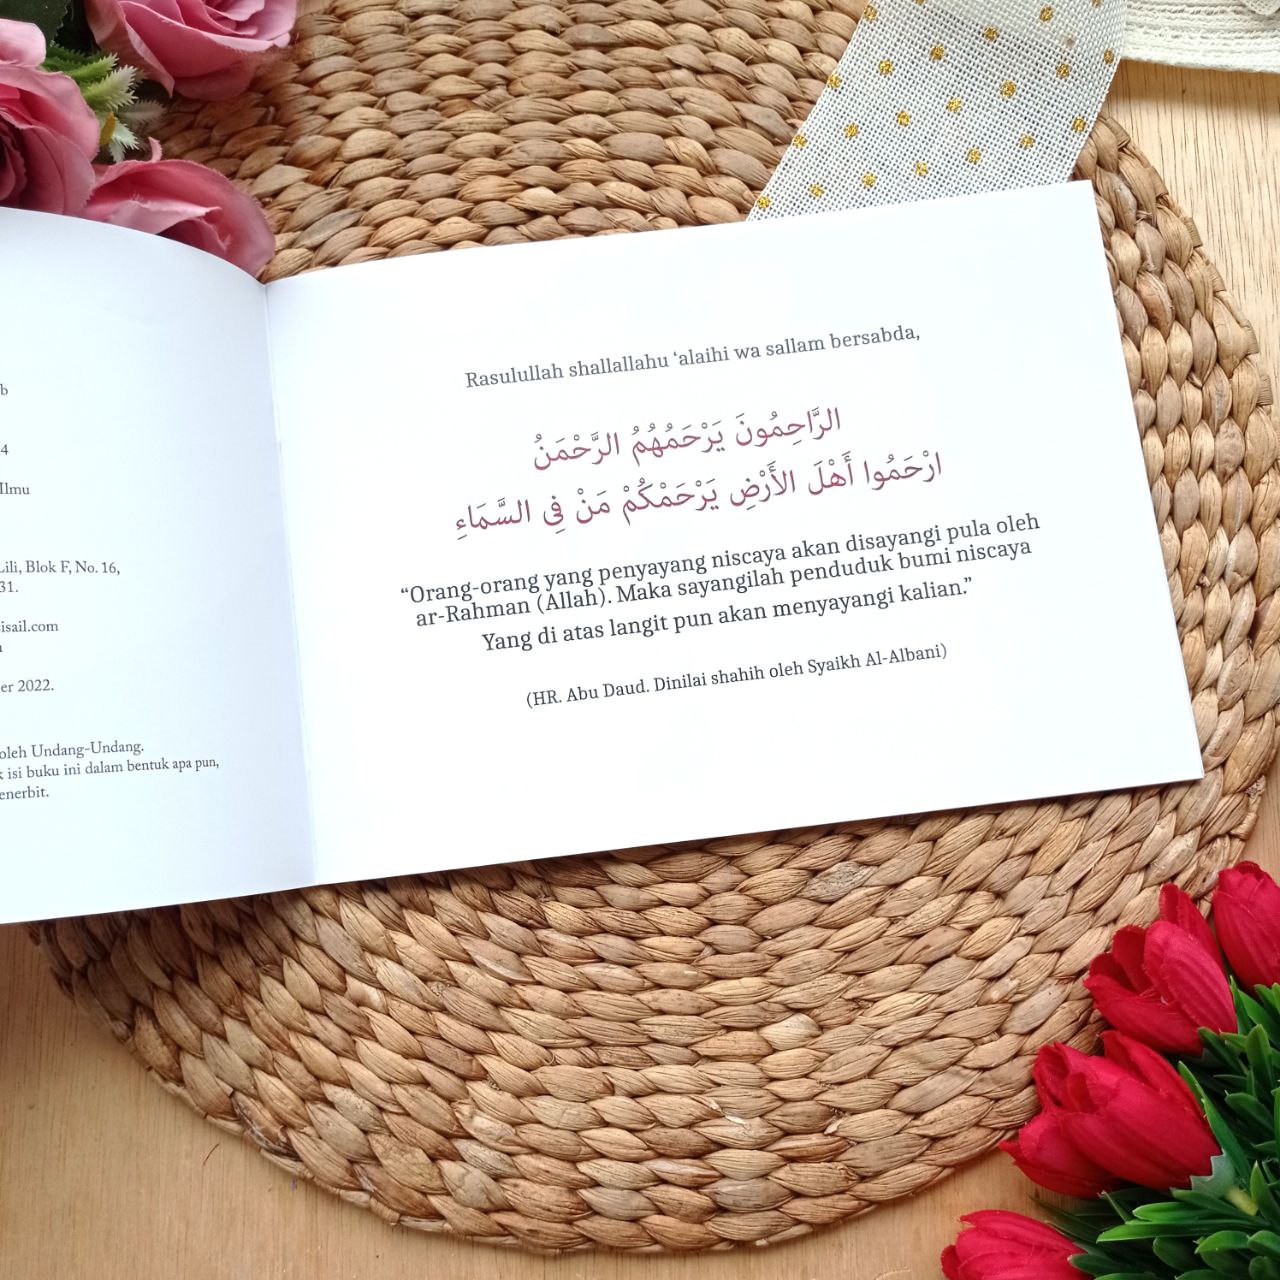 b
4
Ilmu
Lili, Blok F, No. 16,
31.
isail.com
er 2022.
oleh Undang-Undang.
k isi buku ini dalam bentuk apa pun,
enerbit.
Rasulullah shallallahu ‘alaihi wa sallam bersabda,
الرَّاحِمُونَ يَرْحَمُهُمُ الرَّحْمَنُ
ارْحَمُوا أَهْلَ الأَرْضِ يَرْحَمْكُمْ مَنْ فِى السَّمَاءِ
“Orang-orang yang penyayang niscaya akan disayangi pula oleh
ar-Rahman (Allah). Maka sayangilah penduduk bumi niscaya
Yang di atas langit pun akan menyayangi kalian.”
(HR. Abu Daud. Dinilai shahih oleh Syaikh Al-Albani)